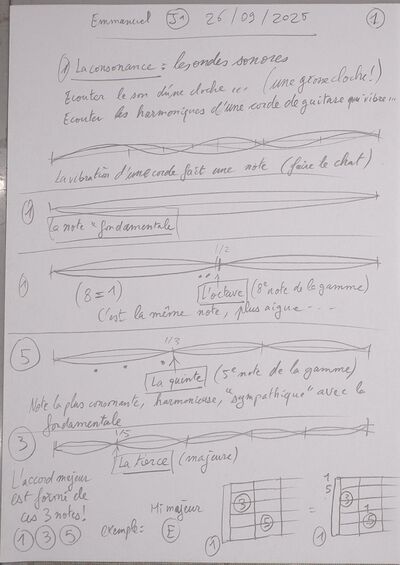 Emmanuel J1 26/09/2025 1
1) La consonance : les ondes sonores
Ecouter le son d'une cloche ... (une grosse cloche!)
Ecouter les harmoniques d'une corde de guitare qui vibre...
La vibration d'une corde fait une note (faire le chat)
1
La note "fondamentale
1/2
1 (8=1) L'octave (8e note de la gamme)
C'est la même note, plus aigue ...
1/3
5
La quinte (5e note de la gamme)
Note la plus consonante, harmonieuse, "sympathique" avec la
fondamentale
3
1/5
La tierce (majeure)
L'accord majeur
est formé de
ces 3 notes!
1 3 5
exemple = Mi majeur
E
1 3 5
=
1 5 3 1 5
1